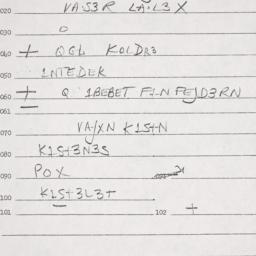 020 VA·S3R LA·L3X
030 O
+ QGL KOLDR3
040
050 1NTEDEK
060 + Q 1BEBET F1·N FEJD3RN
070 VA/XN K1S+N
080 K1S+3N3S
090 POX
100 K1S+3L3+
101 102 +